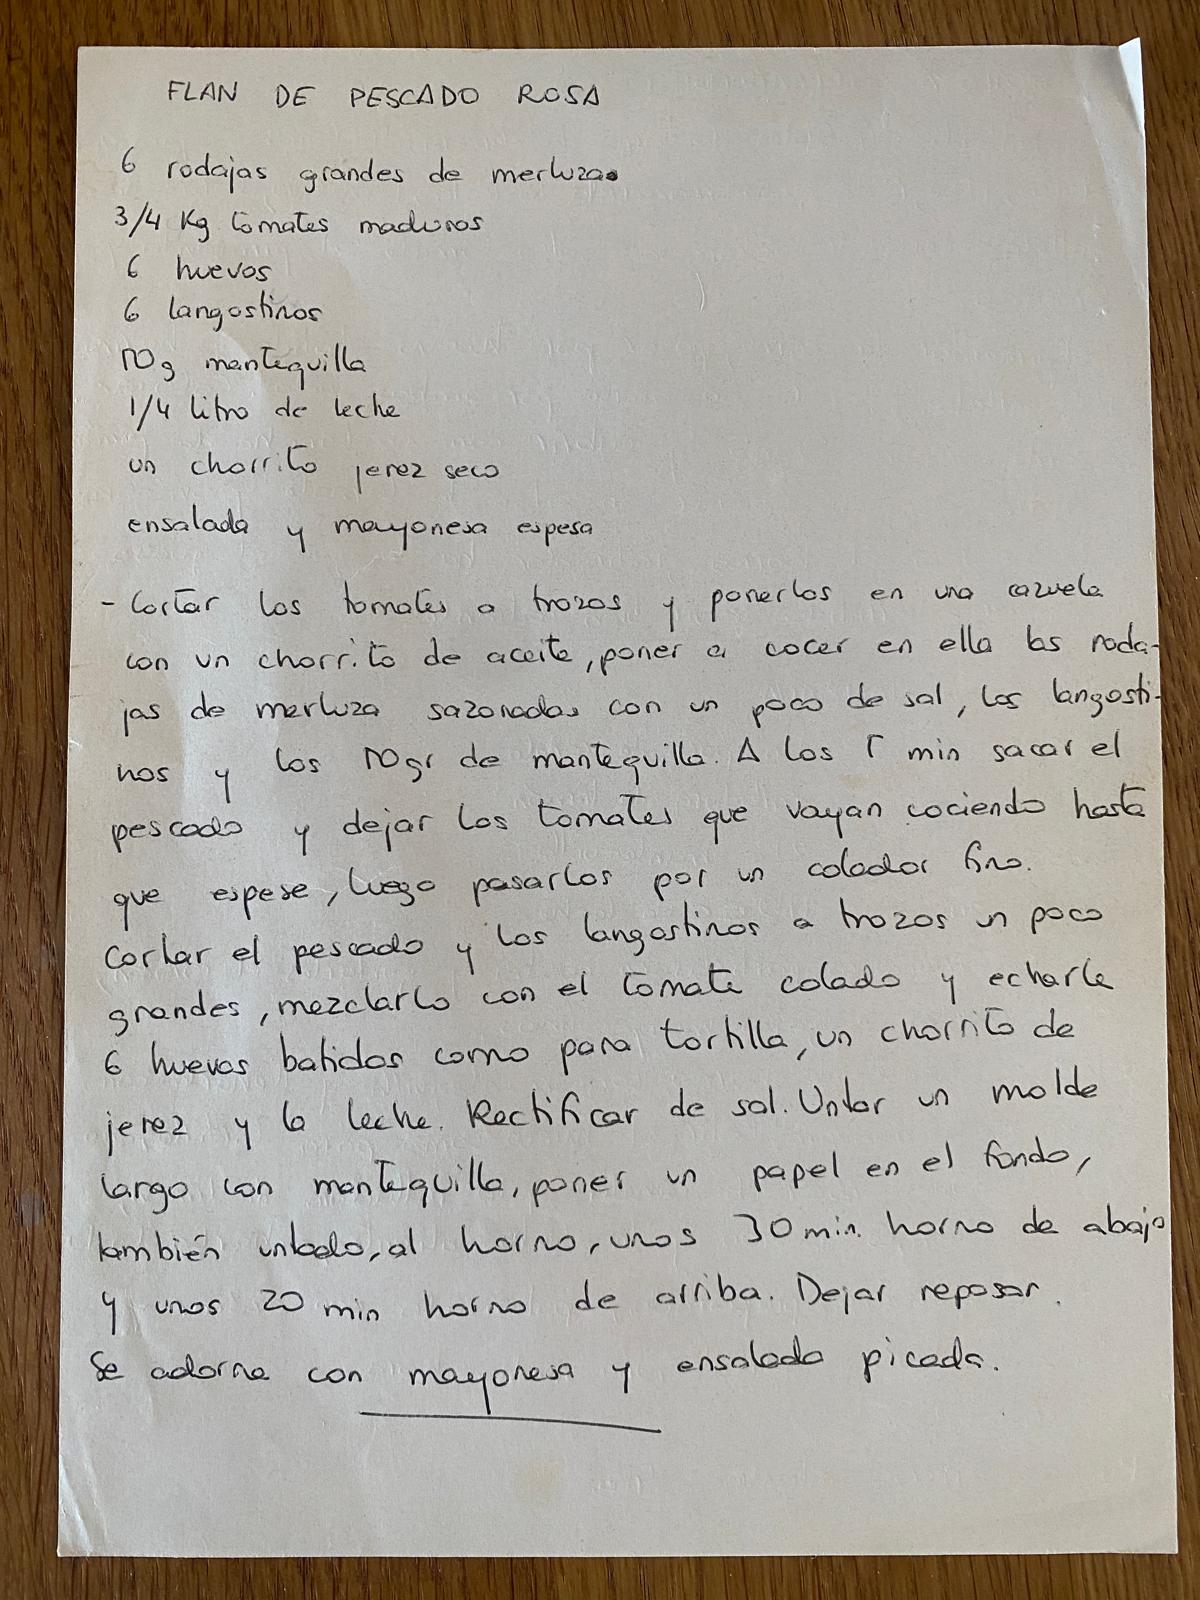 FLAN DE PESCADO ROSA
6 rodajas grandes de merluza.
3/4 Kg tomates maduros
6 huevos
6 langostinos
50g mantequilla
1/4 litro de leche
un chorrito jerez seco
ensalada y mayonesa espesa
- Cortar los tomates a trozos y ponerlos en una cazuela
con un chorrito de aceite, poner a cocer en ella las roda-
jas de merluza sazonadas con un poco de sal, los langosti-
nos y los 50gr de mantequilla. A los 5 min sacar el
pescado y dejar los tomates que vayan cociendo hasta
que espese, luego pasarlos por un colador fino.
Cortar el pescado y los langostinos a trozos un poco
grandes, mezclarlo con el tomate colado y echarle
6 huevos batidos como para tortilla, un chorrito de
jerez y la leche. Rectificar de sal. Untar un molde
largo con mantequilla, poner un papel en el fondo,
también untado, al horno, unos 30 min. horno de abajo
y unos 20 min horno de arriba. Dejar reposar.
Se adorna con mayonesa y ensalada picada.